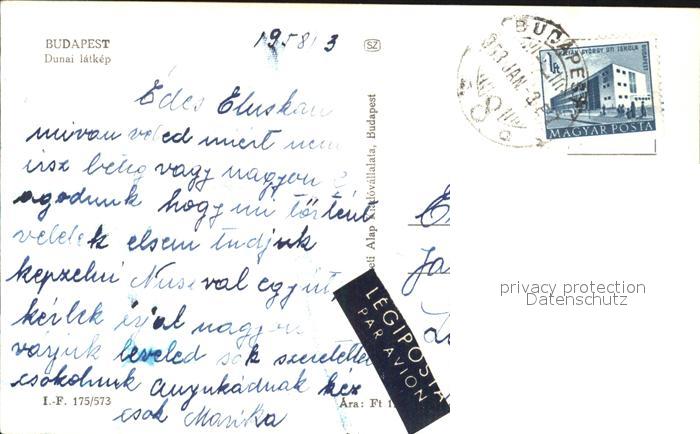 BUDAPEST
Dunai látkép
1958 1/3
SZ
Édes Eluskám
mi van veled miért nem
irsz beteg vagy nagyon
agodunk hogy mi történt
veletek elsem tudjuk
képzelni Nusival együtt
kérlek irjál nagyon
várjuk leveled sok szeretettel
csokolunk anyukádnak kéz
csok Marika
I.-F. 175/573
Ára: Ft 1
Alap Kiadóvállalata, Budapest
LÉGIPOSTA
PAR AVION
BUDAPEST
JAN
8
1Ft
GYÖRGY ÚTI ISKOLA
BUDAPEST
MAGYAR POSTA
privacy protection
Datenschutz